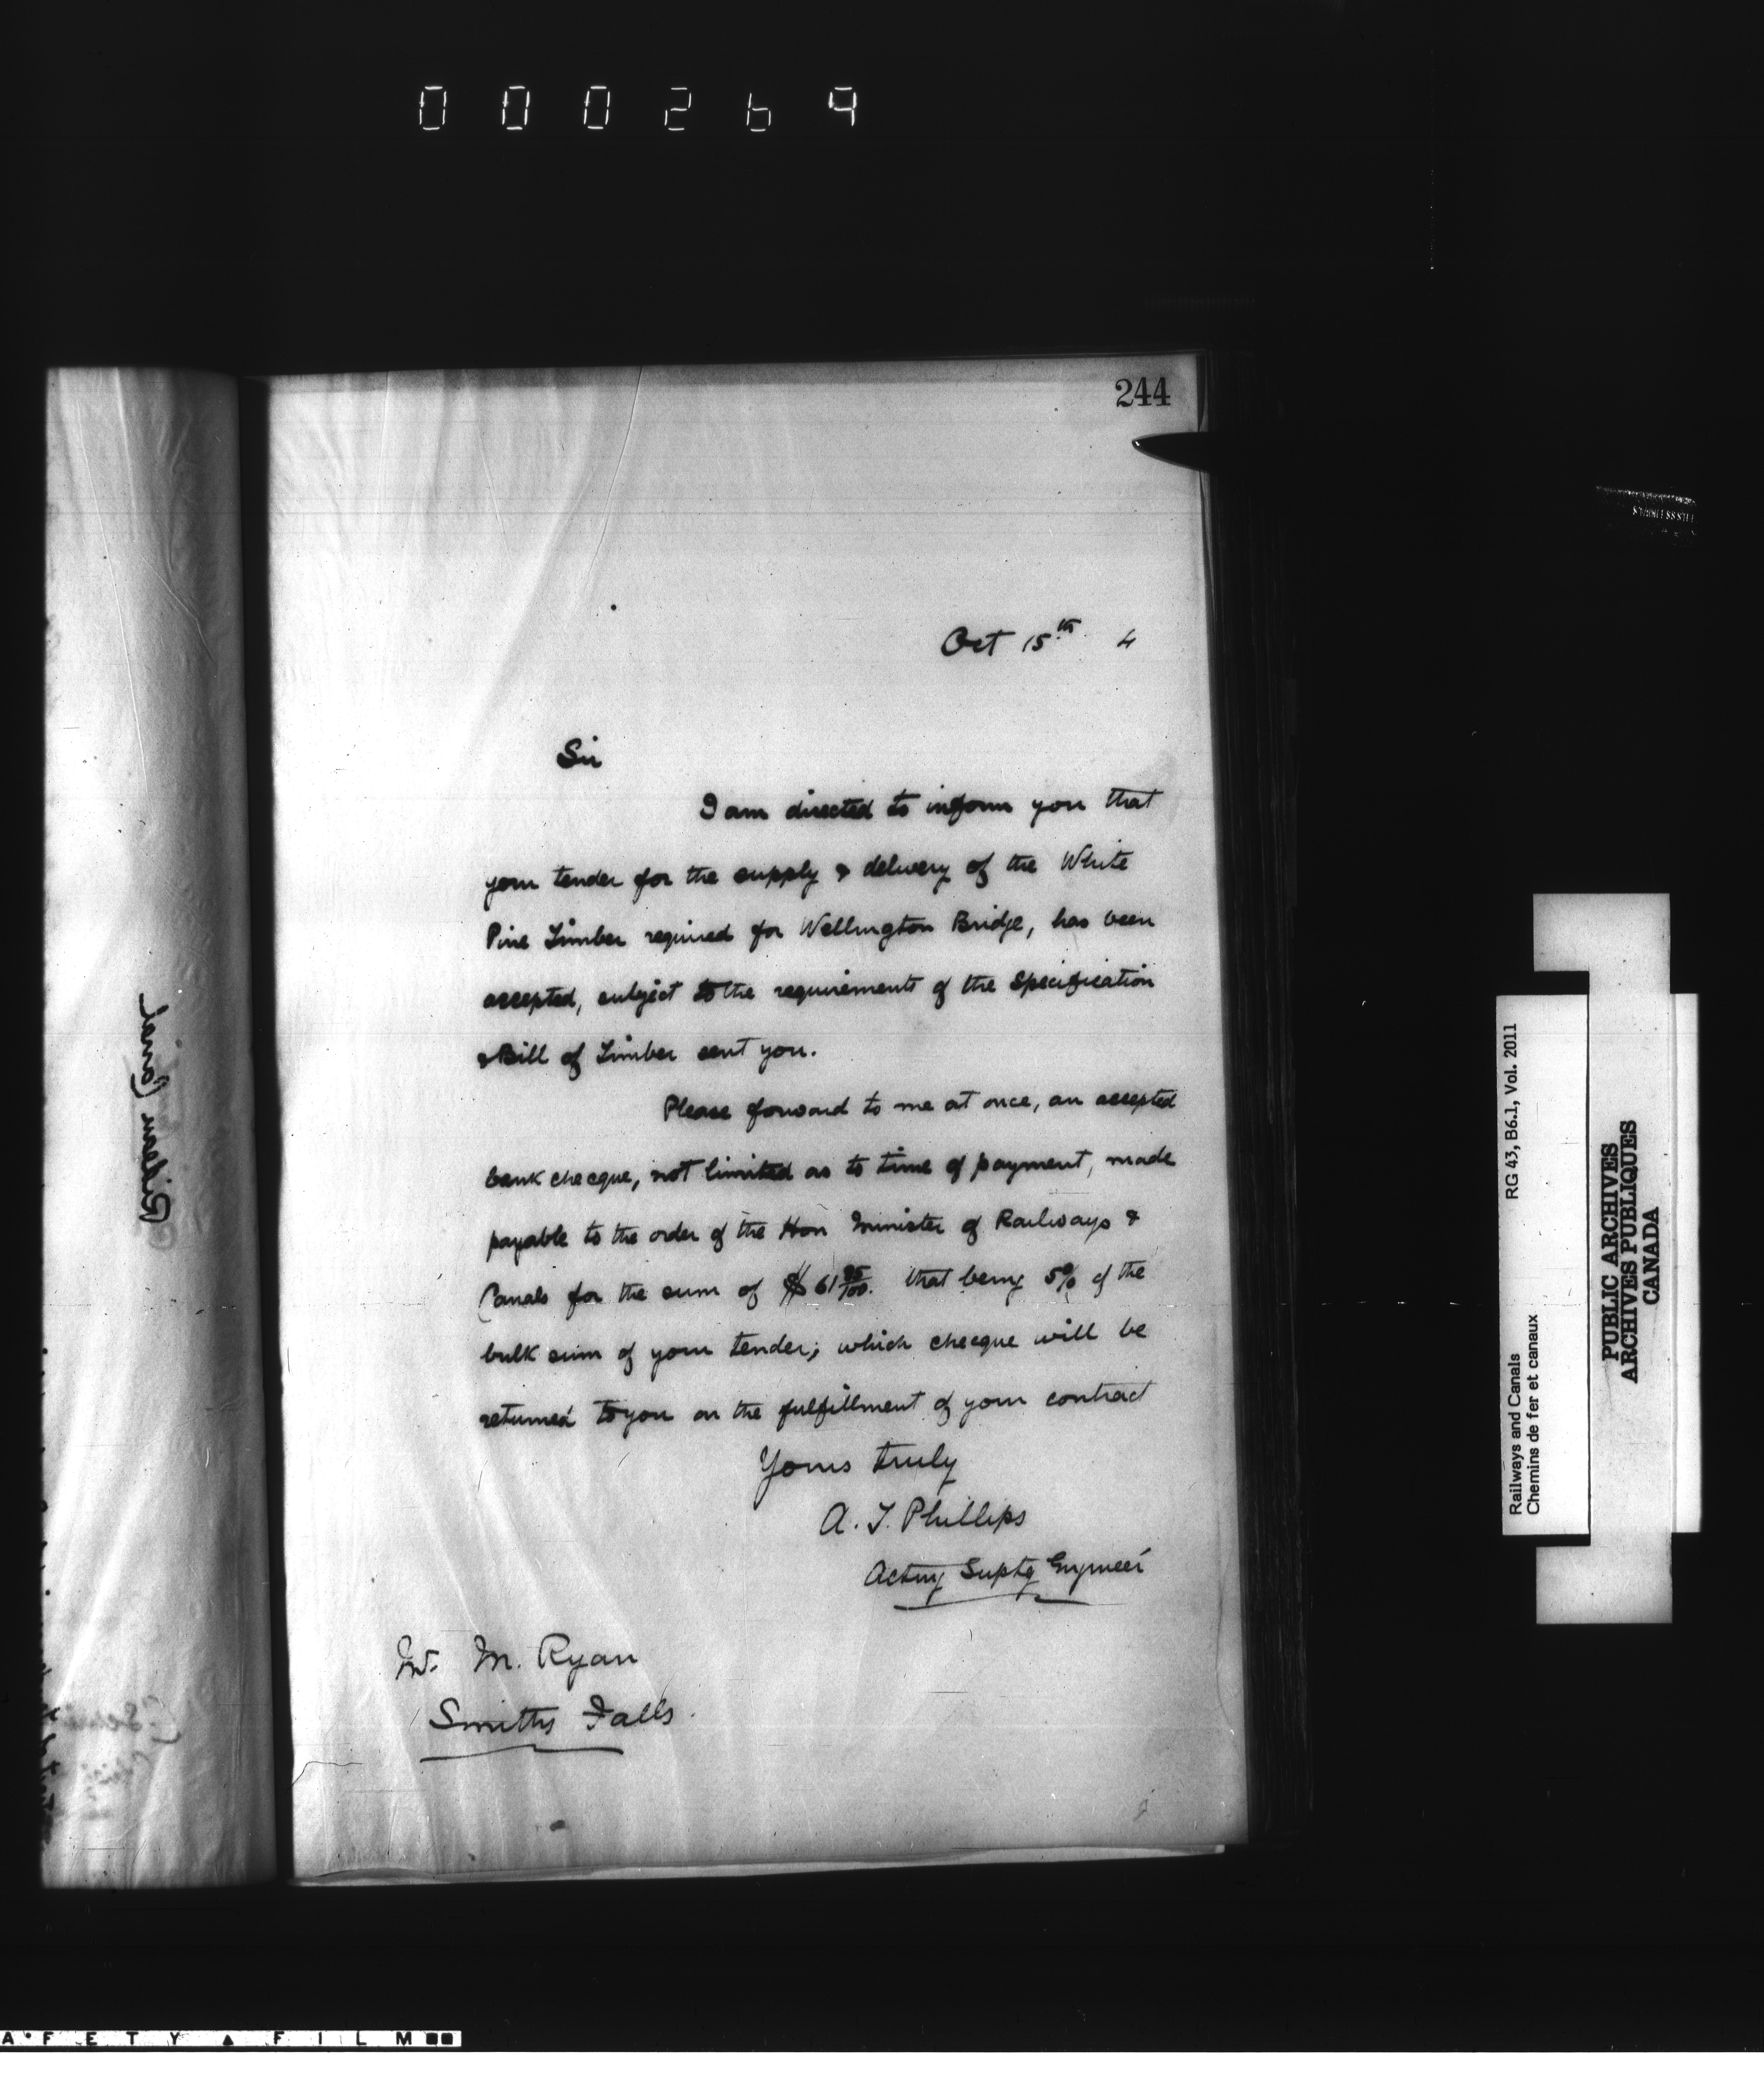 000269
244
Oct 15th 4
Sir
I am directed to inform you that
your tender for the supply & delivery of the White
Pine Timber required for Wellington Bridge, has been
accepted, subject to the requirements of the Specification
& Bill of Timber sent you.
Please forward to me at once, an accepted
bank checque, not limited as to time of payment, made
payable to the order of the Hon Minister of Railways &
Canals for the sum of $61 95/100. that being 5% of the
bulk sum of your tender; which checque will be
returned to you on the fulfillment of your contract
Yours truly
A. T. Phillips
Acting Suptg Engineer
Mr. M. Ryan
Smiths Falls.
Rideau Canal
RG 43, B6.1, Vol. 2011
Railways and Canals
Chemins de fer et canaux
PUBLIC ARCHIVES
ARCHIVES PUBLIQUES
CANADA
AFETY FILM